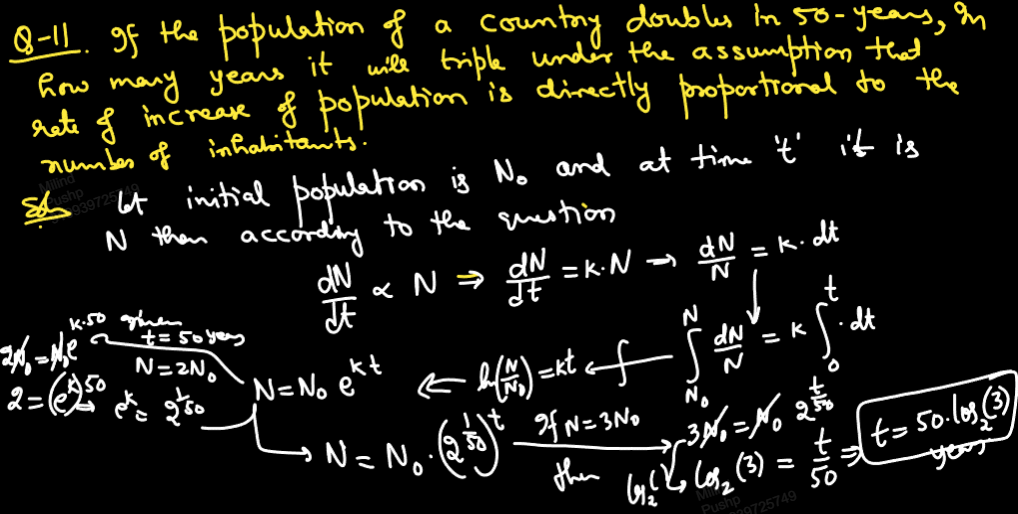 Q-11. If the population of a country doubles in 50-years, in
how many years it will triple under the assumption that
rate of increase of population is directly proportional to the
number of inhabitants.
Soln Let initial population is N₀ and at time 't' it is
N then according to the question
dN/dt ∝ N ⇒ dN/dt = k·N → dN/N = k·dt
∫_{N₀}^{N} dN/N = k ∫_{0}^{t} dt
N = N₀ e^{kt} ← ln(N/N₀) = kt ←
given
t = 50 years
N = 2N₀
2N₀ = N₀e^{k·50}
2 = (e^k)^{50} ⇒ e^k = 2^{1/50}
→ N = N₀·(2^{1/50})^t
If N = 3N₀
then
3N₀ = N₀ 2^{t/50}
log₂(3) = t/50 ⇒ t = 50·log₂(3)
years
Milind
Pushp
939725749
Milind
Pushp
939725749